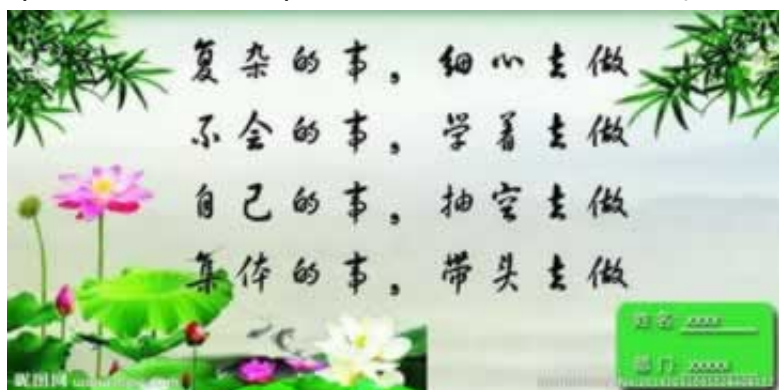 复杂的事，细心去做
不会的事，学着去做
自己的事，抽空去做
集体的事，带头去做
姓名 xxxx
部门 xxxxx
昵图网